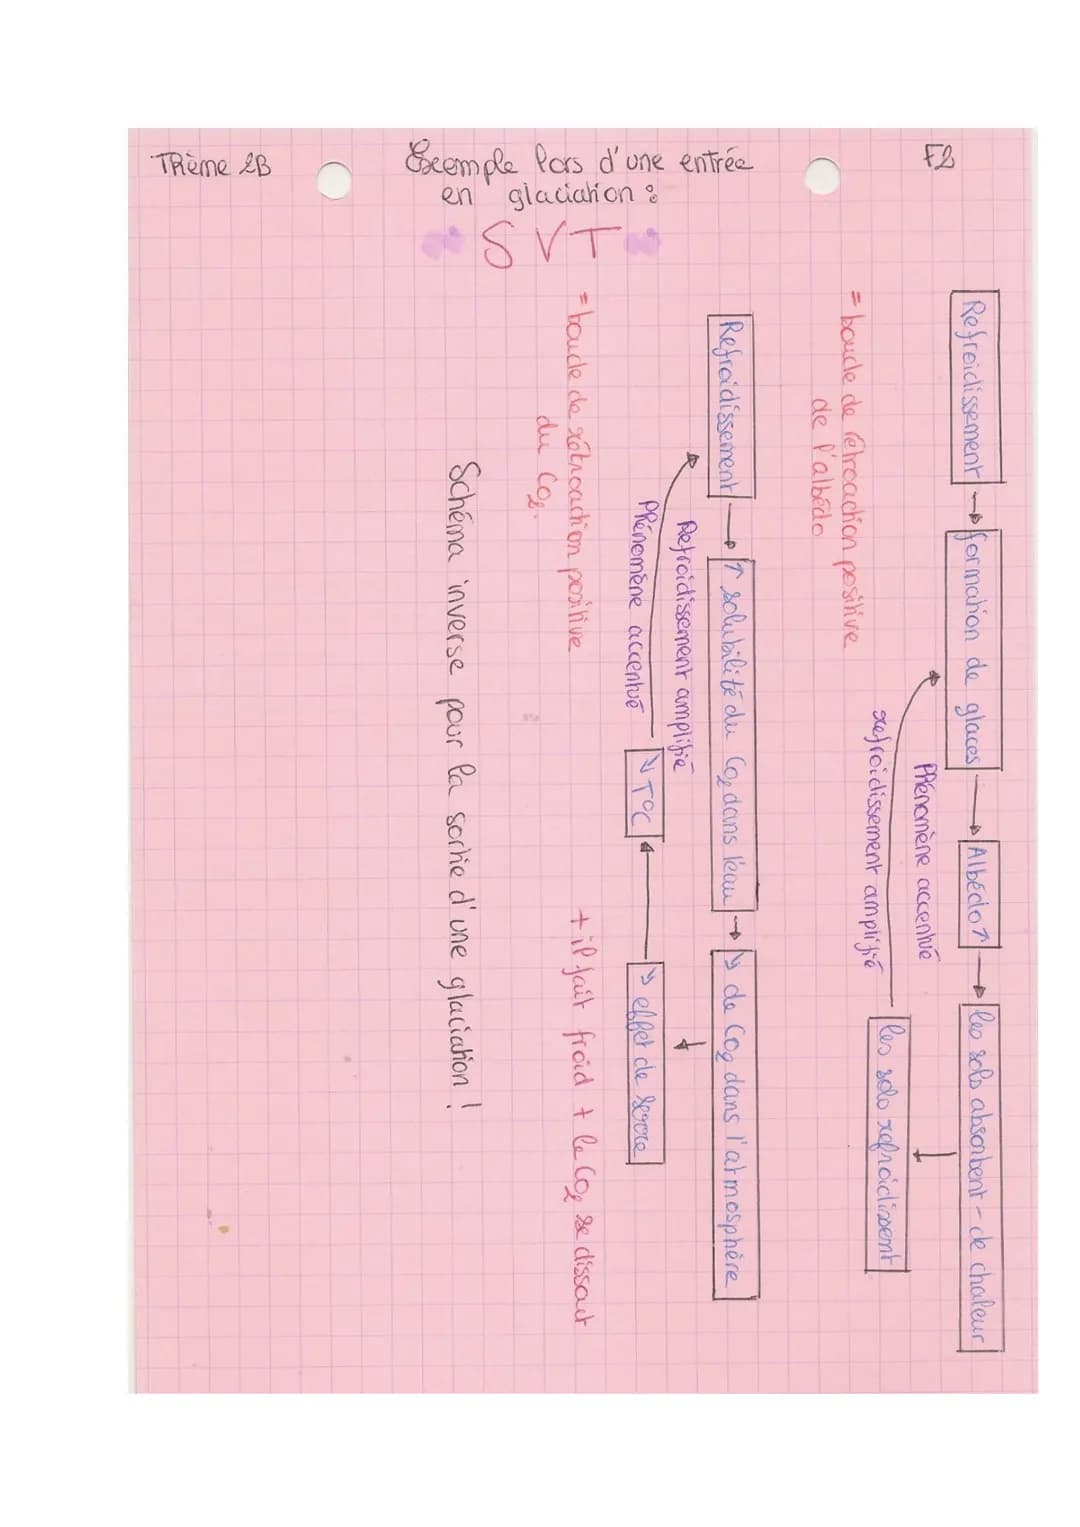 Thème 2B
Exemple lors d'une entrée
en glaciation :
F2
SVT
Refroidissement → formation de glaces → Albédo ↗ → les sols absorbent - de chaleur
Phénomène accentué
refroidissement amplifié
les sols refroidissent
= boucle de rétroaction positive
de l'albédo
Refroidissement → ↗ solubilité du CO2 dans l'eau → ↘ de CO2 dans l'atmosphère
Refroidissement amplifié
Phénomène accentué
↘ T°C ← ↘ effet de serre
= boucle de rétroaction positive
du CO2.
+ il fait froid + le CO2 se dissout
Schéma inverse pour la sortie d'une glaciation !